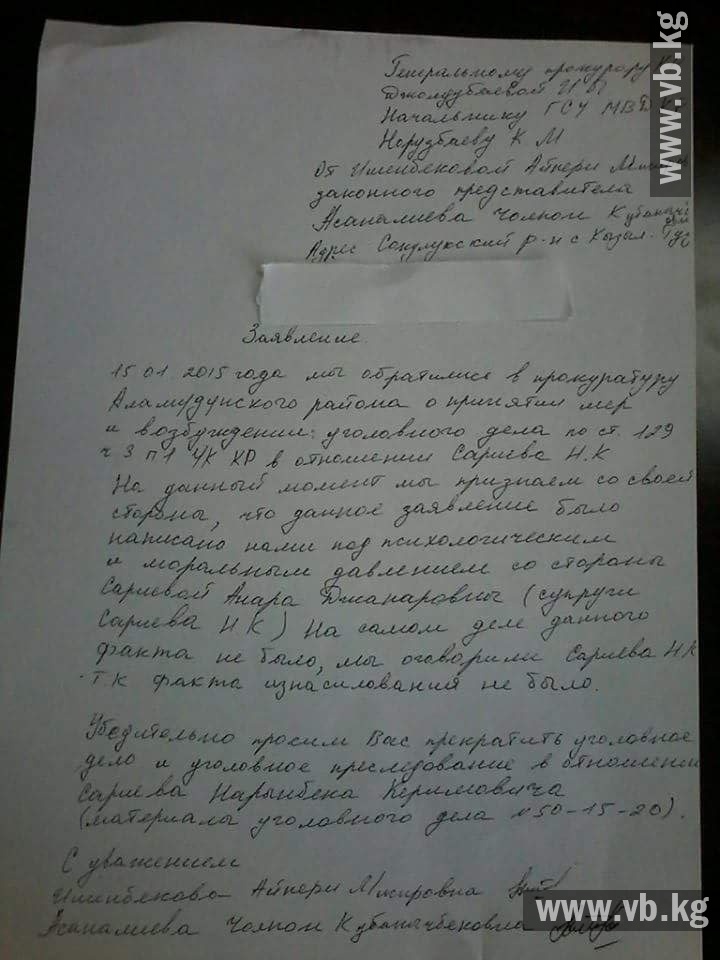 Генеральному прокурору К
Джолдубаевой И Ы
Начальнику ГСУ МВД КР
Норузбаеву К М
От Именбековой Айпери
законного представителя
Асаналиева Чолпон Кубаныч
Адрес Сокулукский р-н с Кызыл-Ту
Заявление.
15.01.2015 года мы обратились в прокуратуру
Аламудунского района о принятии мер
и возбуждении уголовного дела по ст. 129
ч 3 п 1 УК КР в отношении Сариева Н.К
На данный момент мы признаем со своей
стороны, что данное заявление было
написано нами под психологическим
и моральным давлением со стороны
Сариевой Анара Джапаровны (супруги
Сариева Н К) На самом деле данного
факта не было, мы оговорили Сариева Н К
т к факта изнасилования не было.
Убедительно просим Вас прекратить уголовное
дело и уголовное преследование в отношении
Сариева Нарынбека Керимовича
(материалы уголовного дела № 50-15-20).
С уважением
Именбекова Айпери
Асаналиева Чолпон Кубанычбековна
www.vb.kg
www.vb.kg